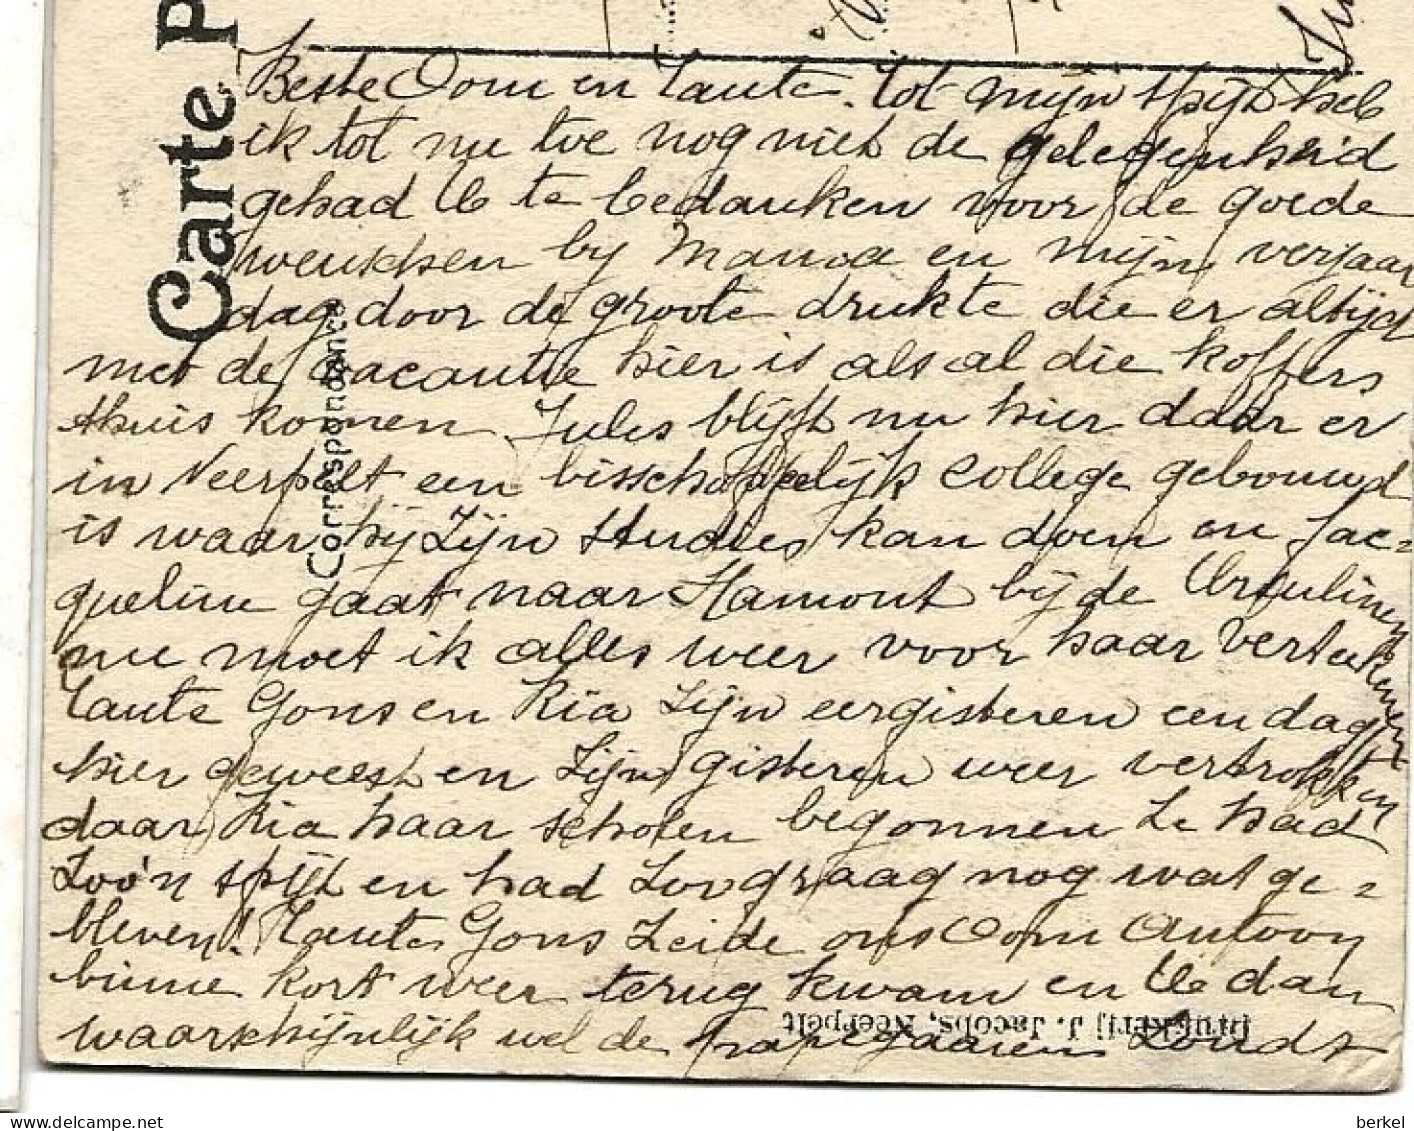 Carte P
Correspondance
Beste Oom en Tante. tot mijn spijt heb
ik tot nu toe nog niet de gelegenheid
gehad U te bedanken voor de goede
wenschen by Mama en mijn verjaar
dag door de groote drukte die er altijd
met de vacantie hier is als al die koffers
thuis komen. Jules blijft nu hier daar er
in Neerpelt een bisschoppelijk college gebouwd
is waar hij zijn studies kan doen en Jac=
queline gaat naar Hamont bij de Ursulinen
nu moet ik alles weer voor haar verteekenen
Tante Gons en Ria zijn eergisteren een dag
hier geweest en zijn gisteren weer vertrokken
daar Ria haar scholen begonnen Ze had
zoo'n spijt en had zoo graag nog wat ge=
bleven! Tante Gons zeide ons Oom Antoon
binne kort weer terug kwam en U dan
waarschijnlijk wel de papegaaien zoudt
Drukkerij J. Jacobs, Neerpelt
www.delcampe.net
berkel